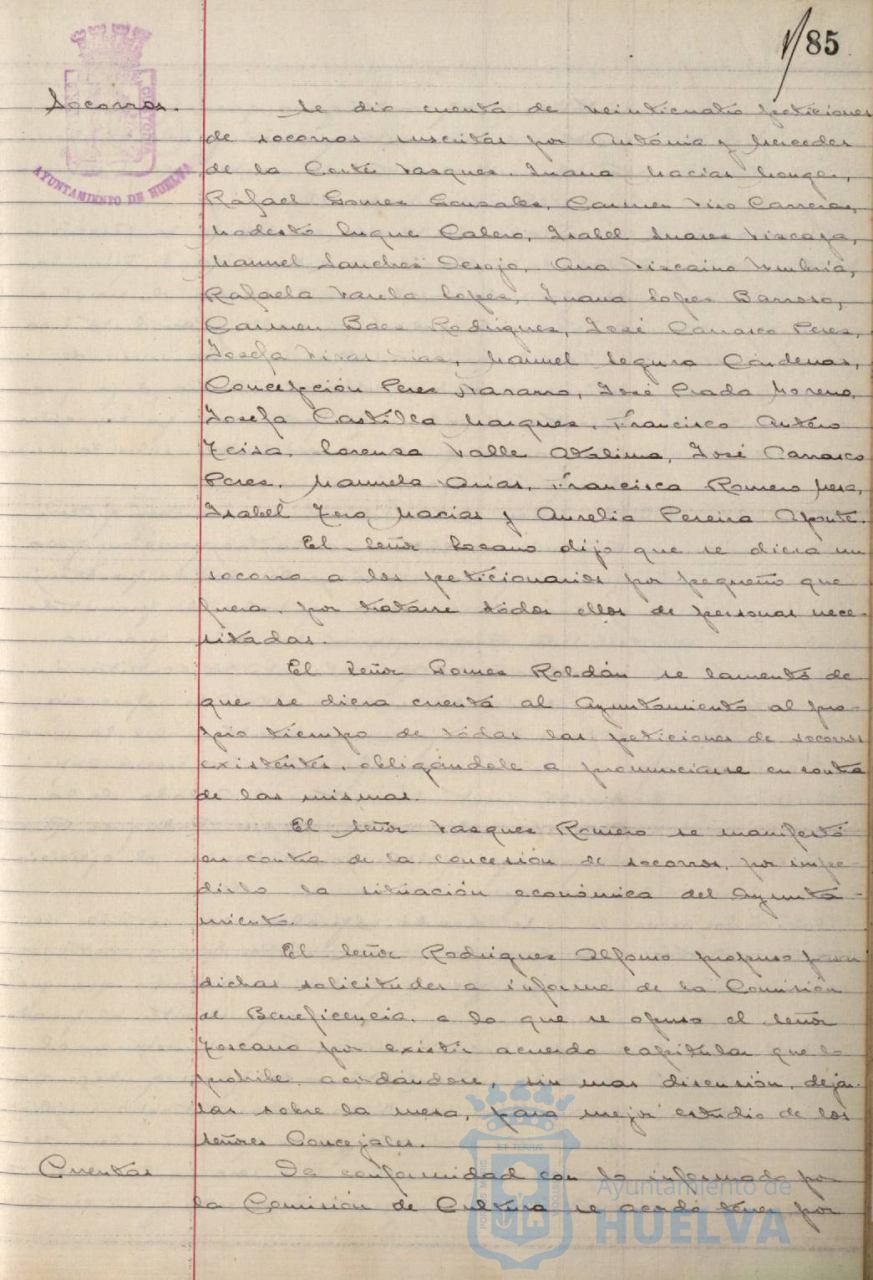 85
Socorros.
AYUNTAMIENTO DE HUELVA
Se dio cuenta de veinticuatro peticiones
de socorros suscritas por Antonia y Mercedes
de la Corte Vasques, Juana Macías Monge,
Rafael Gomes Gonsales, Carmen Viso Carreras,
Modesto Luque Calero, Isabel Suares Viscaya,
Manuel Sanches Desojo, Ana Viscaino Umbría,
Rafaela Varela Lopes, Juana Lopes Barroso,
Carmen Baes Rodrigues, José Carrasco Peres,
Josefa Vivas Dias, Manuel Segura Cárdenas,
Concepción Peres Navarro, José Prada Moreno,
Josefa Castilla Marques, Francisco Antero
Lorensa Valle José Carrasco
Peres, Manuela Arias, Francisca Romero Mesa,
Isabel Toro Macías y Aurelia Pereira Aponte.
El Señor Locano dijo que se diera un
socorro a los peticionarios por pequeño que
fuera, por tratarse todos ellos de personas nece-
sitadas.
El Señor Gomes Roldán se lamentó de
que se diera cuenta al Ayuntamiento al pro-
pio tiempo de todas las peticiones de socorros
existentes, obligándole a pronunciarse en contra
de las mismas.
El Señor Vasques Romero se manifestó
en contra de la concesión de socorros, por impe-
dirlo la situación económica del Ayunta-
miento.
El Señor Rodrigues Alfonso propuso
dichas solicitudes a informe de la Comisión
de Beneficencia, a lo que se opuso el Señor
Toscano por existir acuerdo capitular que lo
prohibe, acordándose, sin mas discusión, dejar-
las sobre la mesa, para mejor estudio de los
Señores Concejales.
Cuentas
De conformidad con lo informado por
la Comisión de Cultura se acordó tener por
Ayuntamiento de
HUELVA